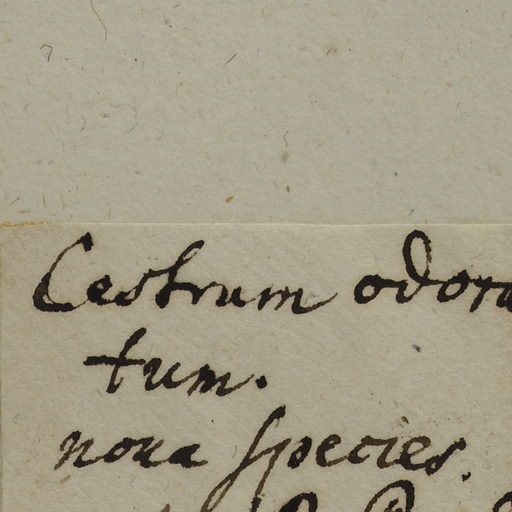 Cestrum odora
tum.
nova species.